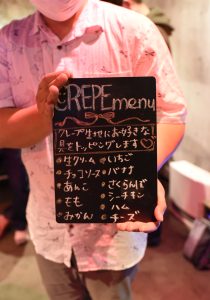 CREPE menu
クレープ生地にお好きな
具をトッピングします
生クリーム いちご
チョコソース バナナ
あんこ さくらんぼ
もも シーチキン
みかん ハム
チーズ